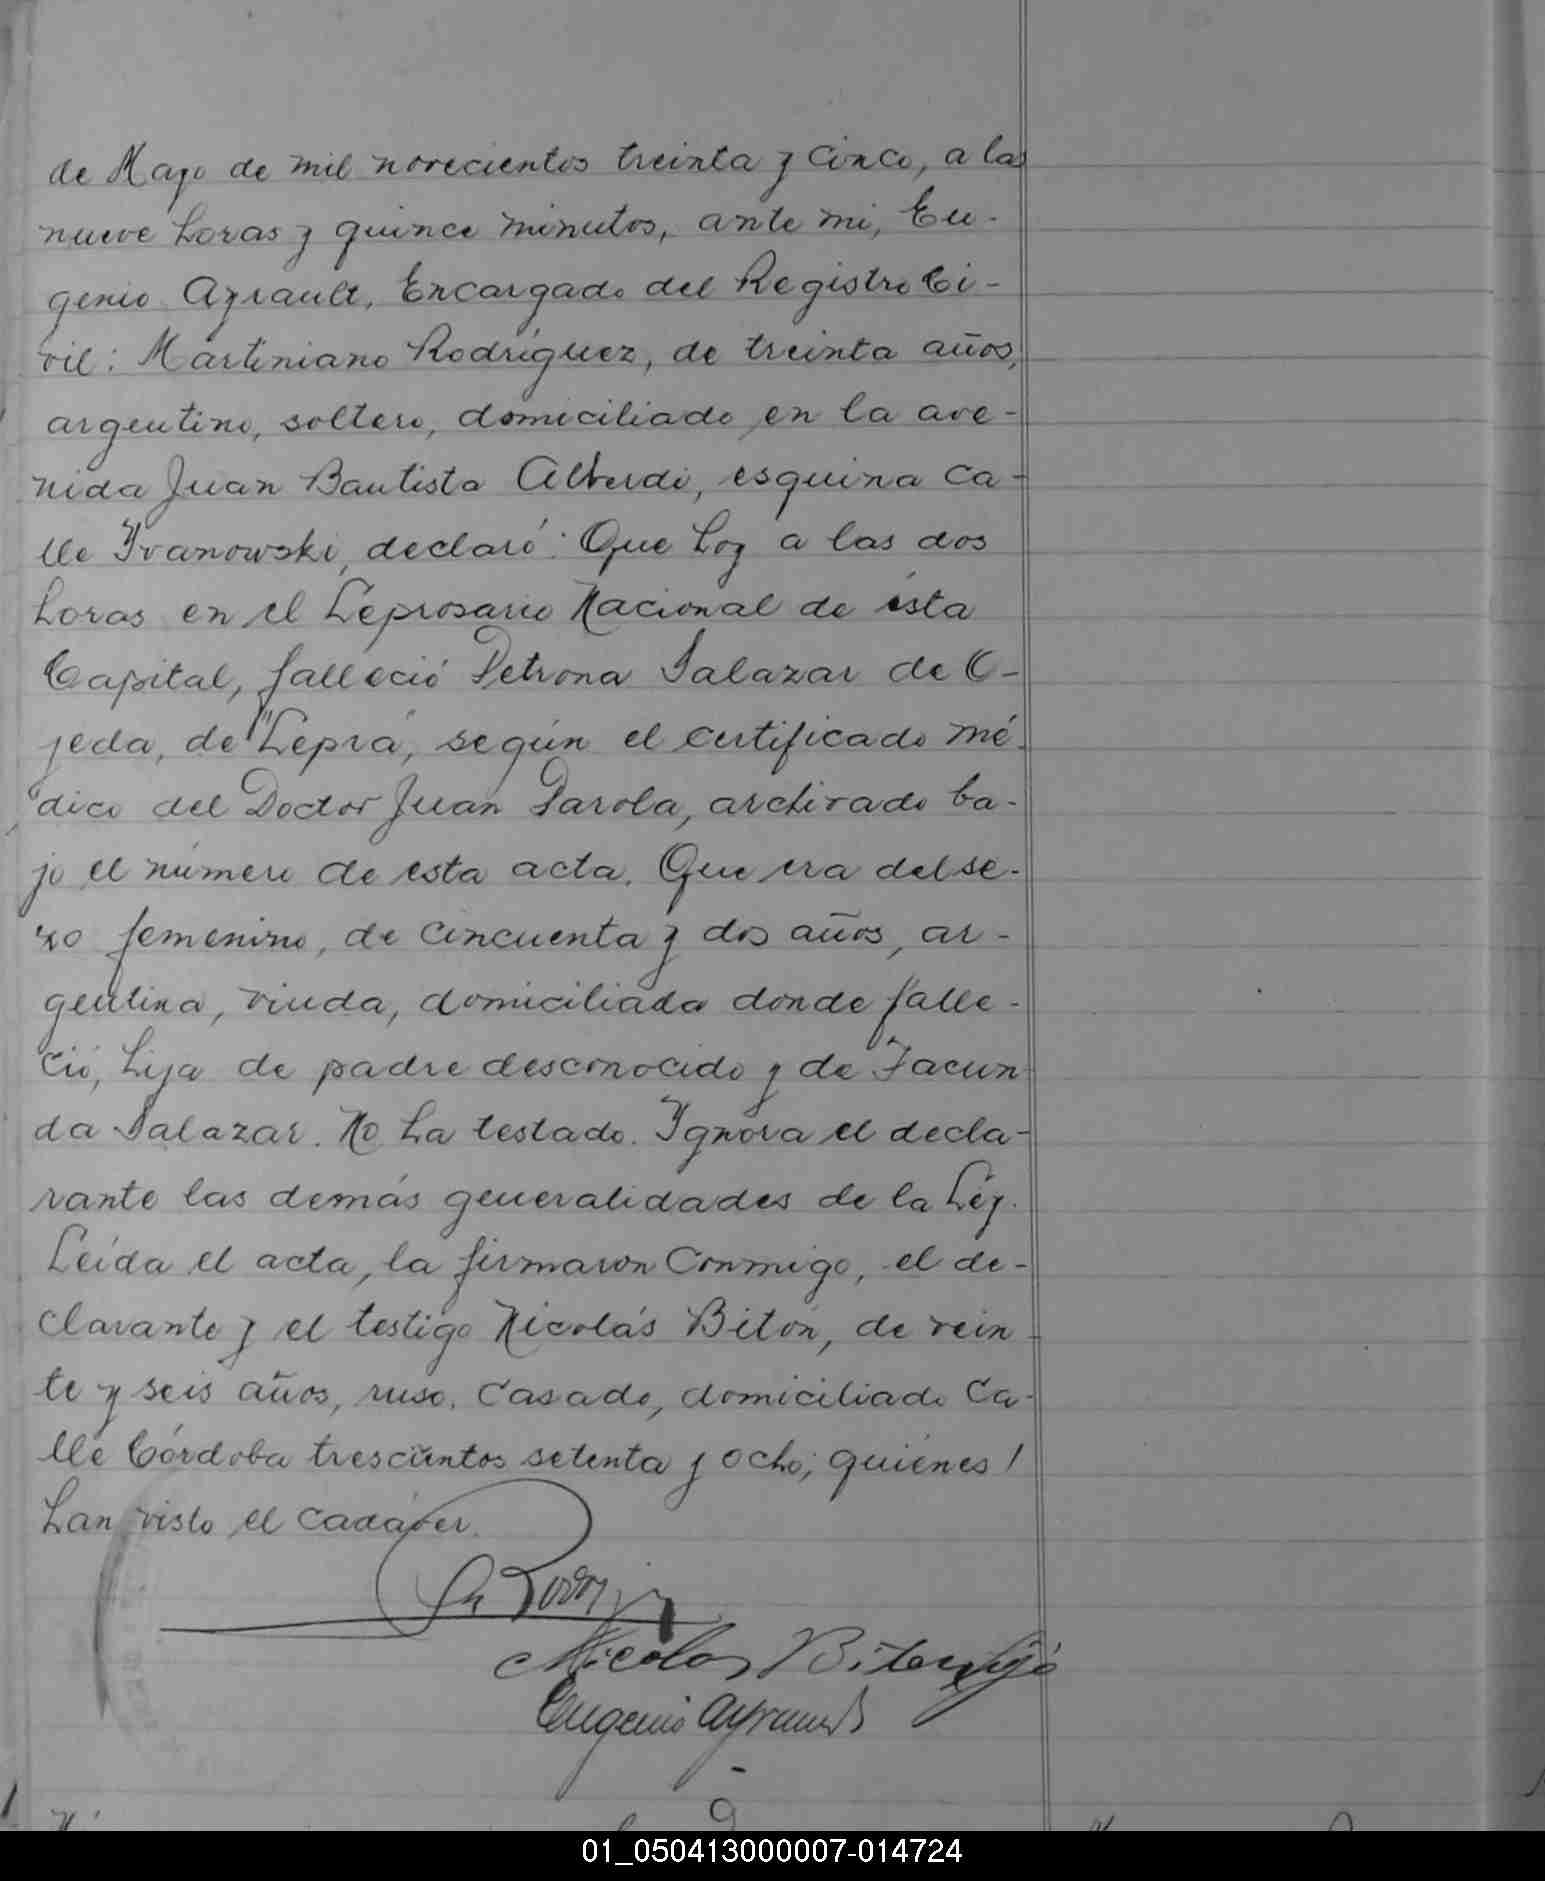 de Mayo de mil novecientos treinta y cinco, a las
nueve horas y quince minutos, ante mi, Eu-
genio Ayrault, Encargado del Registro Ci-
vil: Martiniano Rodríguez, de treinta años,
argentino, soltero, domiciliado en la ave-
nida Juan Bautista Alberdi, esquina ca-
lle Ivanowski, declaró: Que hoy a las dos
horas en el Leprosario Nacional de ésta
Capital, falleció Petrona Salazar de O-
jeda, de "Lepra", según el certificado mé-
dico del Doctor Juan Parola, archivado ba-
jo el número de esta acta. Que era del se-
xo femenino, de cincuenta y dos años, ar-
gentina, viuda, domiciliada donde falle-
ció, hija de padre desconocido y de Facun
da Salazar. No ha testado. Ignora el decla-
rante las demás generalidades de la Ley.
Leída el acta, la firmaron conmigo, el de-
clarante y el testigo Nicolás Bitón, de vein
te y seis años, ruso, casado, domiciliado ca-
lle Córdoba trescientos setenta y ocho; quiénes
han visto el cadáver.
Nicolas
Eugenio Ayrault
01_050413000007-014724